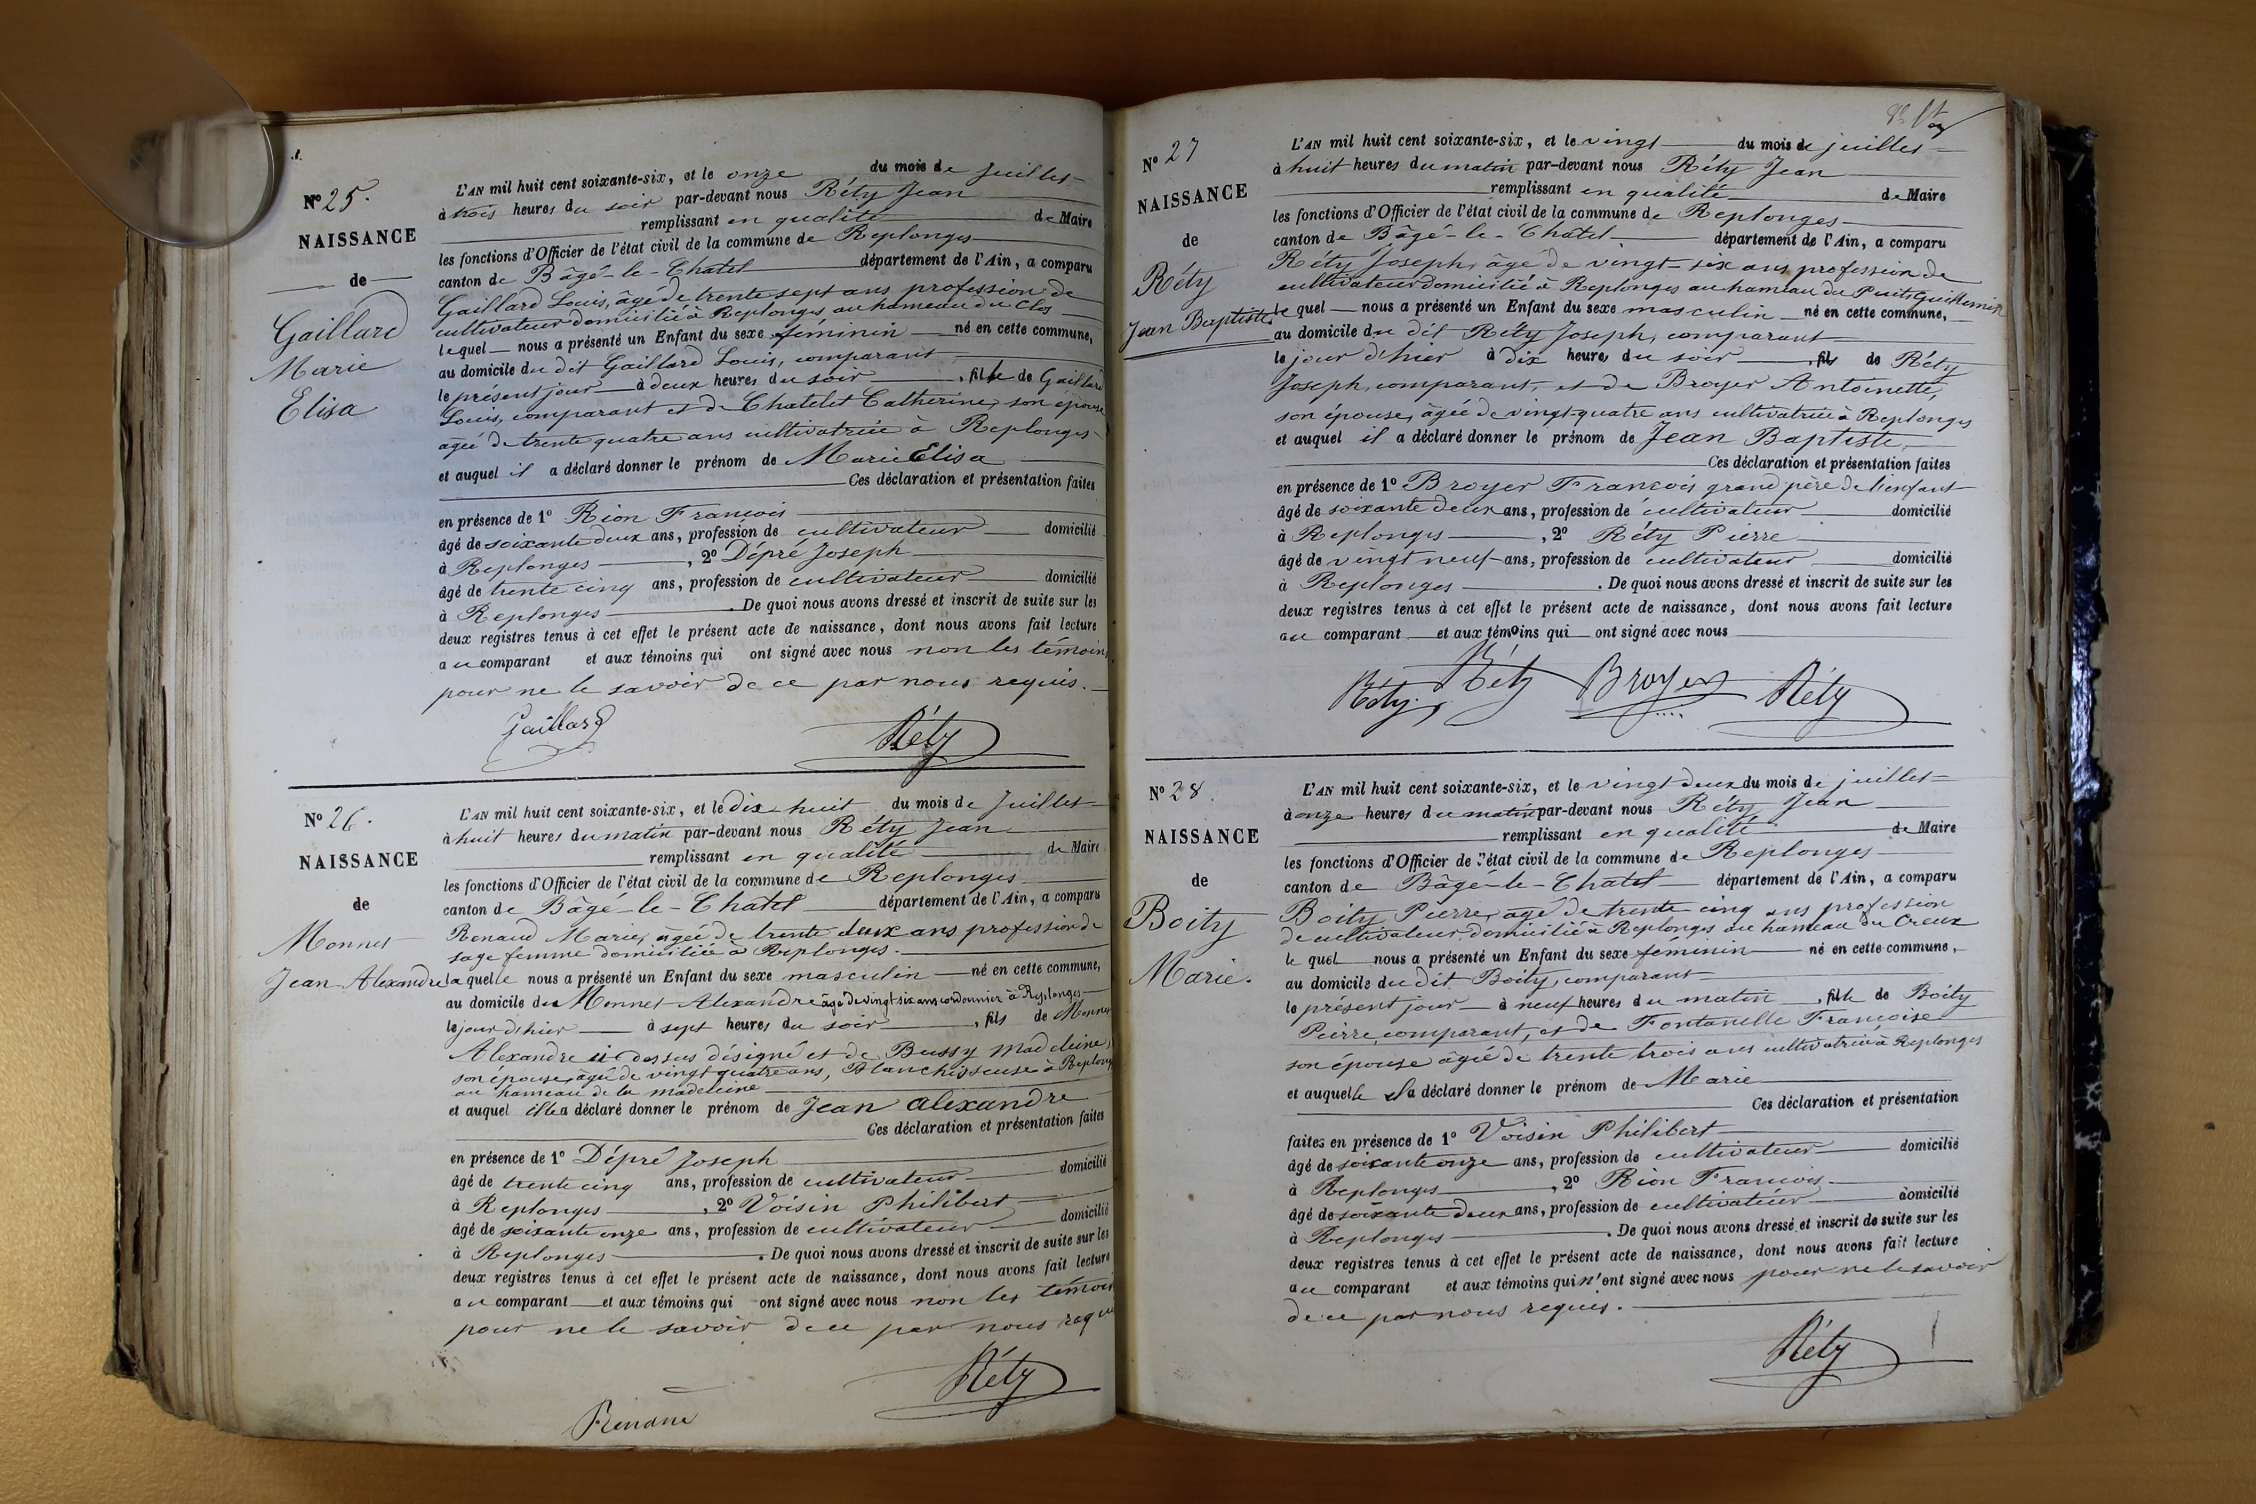 N° 25.
NAISSANCE
de
Gaillard
Marie
Elisa
L'AN mil huit cent soixante-six, et le onze du mois de Juillet
à trois heures du soir par-devant nous Réty Jean
remplissant en qualité de Maire
les fonctions d'Officier de l'état civil de la commune de Replonges
canton de Bâgé-le-Chatel département de l'Ain, a comparu
Gaillard Louis, âgé de trente sept ans profession de
cultivateur domicilié à Replonges au hameau du Clos
lequel nous a présenté un Enfant du sexe féminin né en cette commune,
au domicile du dit Gaillard Louis, comparant
le présent jour à deux heures du soir, fille de Gaillard
Louis, comparant et de Chatelet Catherine, son épouse
âgée de trente quatre ans cultivatrice à Replonges
et auquel il a déclaré donner le prénom de Marie Elisa
Ces déclaration et présentation faites
en présence de 1° Rion Francois
âgé de soixante deux ans, profession de cultivateur domicilié
à Replonges, 2° Dépré Joseph
âgé de trente cinq ans, profession de cultivateur domicilié
à Replonges. De quoi nous avons dressé et inscrit de suite sur les
deux registres tenus à cet effet le présent acte de naissance, dont nous avons fait lecture
au comparant et aux témoins qui ont signé avec nous non les témoins
pour ne le savoir de ce par nous requis.
Gaillard Réty
N° 26.
NAISSANCE
de
Monnet
Jean Alexandre
L'AN mil huit cent soixante-six, et le dix huit du mois de Juillet
à huit heures du matin par-devant nous Réty Jean
remplissant en qualité de Maire
les fonctions d'Officier de l'état civil de la commune de Replonges
canton de Bâgé-le-Chatel département de l'Ain, a comparu
Renaud Marie, âgée de trente deux ans profession de
sage femme domiciliée à Replonges.
laquelle nous a présenté un Enfant du sexe masculin né en cette commune,
au domicile de Monnet Alexandre âgé de vingt six ans cordonnier à Replonges
le jour d'hier à sept heures du soir, fils de Monnet
Alexandre ci dessus désigné et de Bussy Madeleine,
son épouse, âgée de vingt quatre ans, Blanchisseuse à Replong
au hameau de la madeleine
et auquel elle a déclaré donner le prénom de Jean Alexandre
Ces déclaration et présentation faites
en présence de 1° Dépré Joseph
âgé de trente cinq ans, profession de cultivateur domicilié
à Replonges, 2° Voisin Philibert
âgé de soixante onze ans, profession de cultivateur domicilié
à Replonges. De quoi nous avons dressé et inscrit de suite sur les
deux registres tenus à cet effet le présent acte de naissance, dont nous avons fait lecture
au comparant et aux témoins qui ont signé avec nous non les témoin
pour ne le savoir de ce par nous requ
Réty
Renaud
N° 27
NAISSANCE
de
Réty
Jean Baptiste
L'AN mil huit cent soixante-six, et le vingt du mois de juillet
à huit heures du matin par-devant nous Réty Jean
remplissant en qualité de Maire
les fonctions d'Officier de l'état civil de la commune de Replonges
canton de Bâgé-le-Chatel département de l'Ain, a comparu
Réty Joseph, âgé de vingt-six ans profession de
cultivateur domicilié à Replonges au hameau du Puits Guillemin
le quel nous a présenté un Enfant du sexe masculin né en cette commune,
au domicile du dit Réty Joseph, comparant
le jour d'hier à dix heures du soir, fils de Réty
Joseph, comparant, et de Broyer Antoinette,
son épouse, âgée de vingt-quatre ans cultivatrice à Replonges
et auquel il a déclaré donner le prénom de Jean Baptiste
Ces déclaration et présentation faites
en présence de 1° Broyer Francois grand père de l'enfant
âgé de soixante deux ans, profession de cultivateur domicilié
à Replonges, 2° Réty Pierre
âgé de vingt neuf ans, profession de cultivateur domicilié
à Replonges. De quoi nous avons dressé et inscrit de suite sur les
deux registres tenus à cet effet le présent acte de naissance, dont nous avons fait lecture
au comparant et aux témoins qui ont signé avec nous
Réty Réty Broyer Réty
N° 28.
NAISSANCE
de
Boity
Marie.
L'AN mil huit cent soixante-six, et le vingt deux du mois de juillet
à onze heures du matin par-devant nous Réty Jean
remplissant en qualité de Maire
les fonctions d'Officier de l'état civil de la commune de Replonges
canton de Bâgé-le-Chatel département de l'Ain, a comparu
Boity Pierre, âgé de trente cinq ans profession
de cultivateur domicilié à Replonges au hameau du Creux
le quel nous a présenté un Enfant du sexe féminin né en cette commune,
au domicile du dit Boity, comparant
le présent jour à neuf heures du matin, fille de Boity
Pierre, comparant, et de Fontanelle Francoise
son épouse âgée de trente trois ans cultivatrice à Replonges
et auquelle il a déclaré donner le prénom de Marie
Ces déclaration et présentation
faites en présence de 1° Voisin Philibert
âgé de soixante onze ans, profession de cultivateur domicilié
à Replonges, 2° Rion Francois
âgé de soixante deux ans, profession de cultivateur domicilié
à Replonges. De quoi nous avons dressé et inscrit de suite sur les
deux registres tenus à cet effet le présent acte de naissance, dont nous avons fait lecture
au comparant et aux témoins qui n'ont signé avec nous pour ne le savoir
de ce par nous requis.
Réty